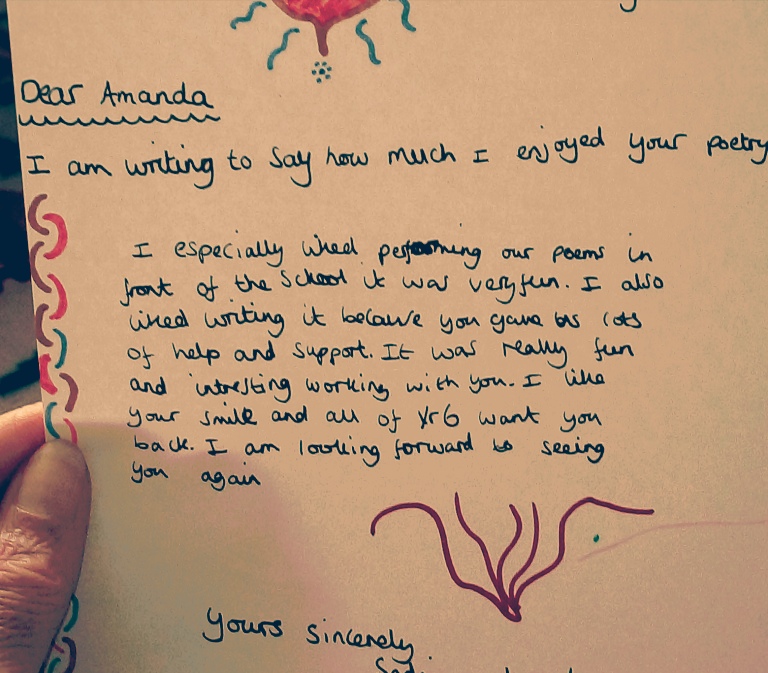 Dear Amanda
I am writing to say how much I enjoyed your poetry
I especially liked performing our poems in
front of the School it was very fun. I also
liked writing it because you gave us lots
of help and support. It was really fun
and intresting working with you. I like
your smile and all of Yr6 want you
back. I am looking forward to seeing
you again
Yours sincerely